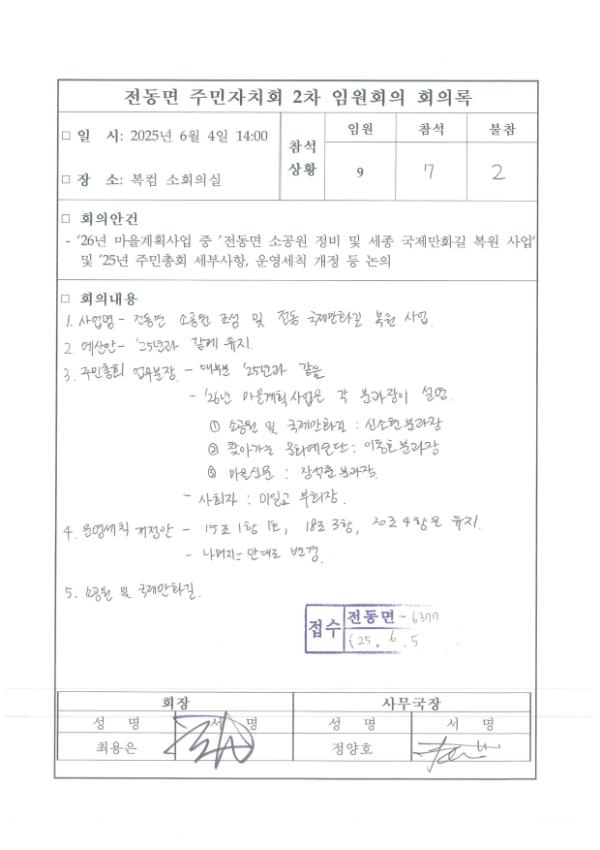 전동면 주민자치회 2차 임원회의 회의록
□ 일 시: 2025년 6월 4일 14:00
□ 장 소: 복컴 소회의실
참석상황
임원 참석 불참
9 7 2
□ 회의안건
- '26년 마을계획사업 중 '전동면 소공원 정비 및 세종 국제만화길 복원 사업'
및 '25년 주민총회 세부사항, 운영세칙 개정 등 논의
□ 회의내용
1. 사업명 - 전동면 소공원 조성 및 전동 국제만화길 복원 사업.
2. 예산안 - '25년과 같게 유지.
3. 주민총회 업무분장 - 대부분 '25년과 같음
- '26년 마을계획사업은 각 분과장이 설명.
① 소공원 및 국제만화길 : 신소현 분과장
② 찾아가는 문화예술단 : 분과장
③ 마을신문 : 장석춘 분과장.
- 사회자 : 이일고 부회장.
4. 운영세칙 개정안 - 1항 18조 3항, 20조 4항은 유지.
- 나머지는 안대로 변경.
5. 소공원 및 국제만화길.
접수 전동면 - 6377
'25. 6. 5
회장 사무국장
성 명 서 명 성 명 서 명
최용은 정양호